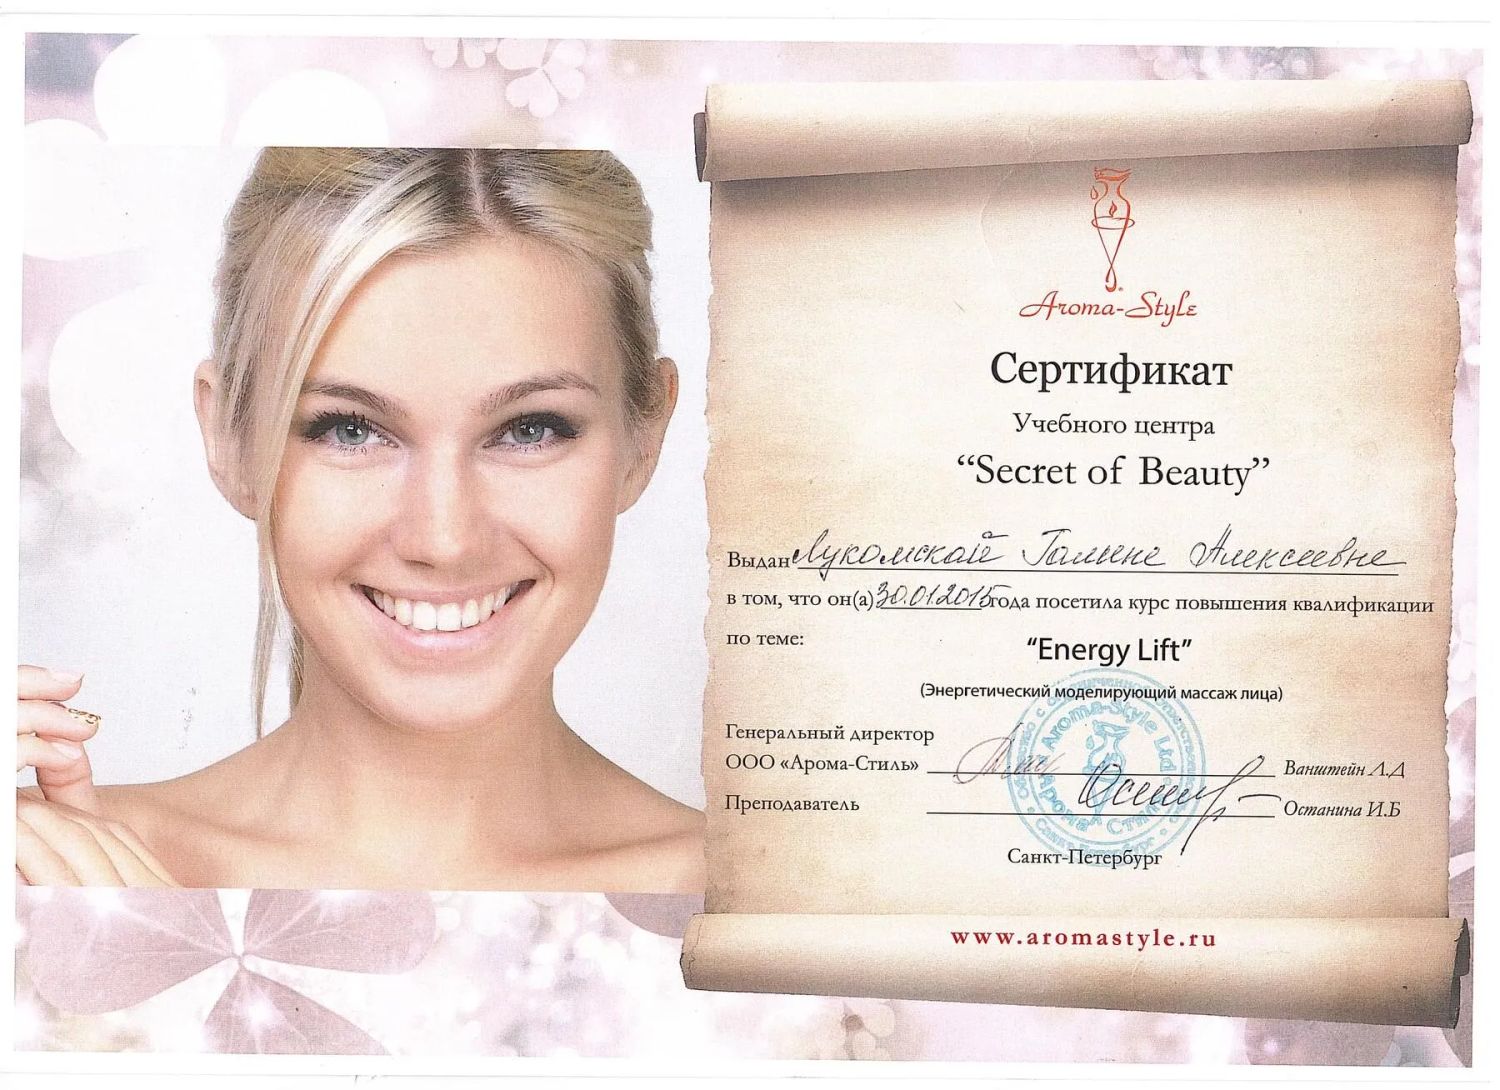 Aroma-Style
Сертификат
Учебного центра
“Secret of Beauty”
Выдан Лукомской Галине Алексеевне
в том, что он(а) 30.01.2015 года посетила курс повышения квалификации
по теме:
“Energy Lift”
(Энергетический моделирующий массаж лица)
Генеральный директор
ООО «Арома-Стиль» Ванштейн Л.Д
Преподаватель Останина И.Б
Aroma-Style Ltd
Арома Стиль
Санкт-Петербург
www.aromastyle.ru